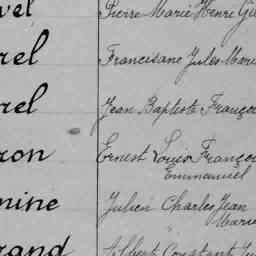 vel Pierre Marie Henri
rel Francisane Jules Marie
rel Jean Baptiste François
ron Ernest Louis François
Emmanuel
mine Julien Charles Jean
Marie
rand Albert Constant